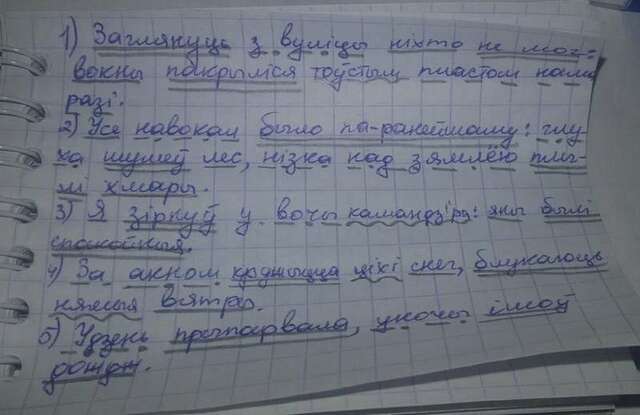 1) Заглянуць з вуліцы ніхто не мог:
вокны пакрыліся тоўстым пластом нама
разі.
2) Усе навокал было па-ранейшаму: глу-
ха шумеў лес, нізка над зямлёю плы-
лі хмары.
3) Я зірнуў у вочы камандзіра: яны былі
спакойныя.
4) За акном кружыцца ціхі снег, блукаюць
няжыя вятры.
5) Удзень прыпарвала, уночы ішоў
дождж.